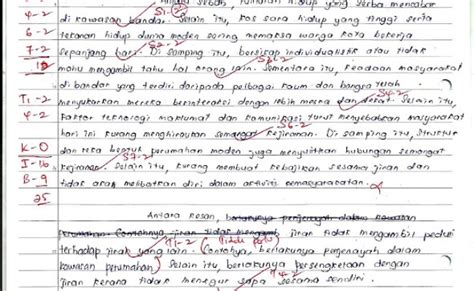 4-2 Antara sebab, tuntutan hidup yang serba mencabar
di kawasan bandar. Selain itu, kos sara hidup yang tinggi serta
6-2 tekanan hidup dunia moden sering memaksa warga kota bekerja
7-2 sepanjang hari. Di samping itu, bersikap individualistik atau tidak
12 mahu mengambil tahu hal orang lain. Sementara itu, keadaan masyarakat
di bandar yang terdiri daripada pelbagai kaum dan bangsa telah
T1-2 menyukarkan mereka berinteraksi dengan lebih mesra dan dekat. Selain itu,
4-2 Faktor teknologi maklumat dan komunikasi turut menyebabkan masyarakat
hari ini kurang menghiraukan semangat kejiranan. Di samping itu, struktur
K-0 dan reka bentuk perumahan moden juga menyulitkan hubungan semangat
I-16 kejiranan. Selain itu, kurang membuat kebajikan sesama jiran dan
B-9 tidak akan melibatkan diri dalam aktiviti kemasyarakatan.
25
Antara kesan, berlakunya penjenayah dalam kawasan
perumahan. Contohnya jiran tidak jiran tidak mengambil peduli
terhadap jiran yang lain. Contohnya, berlakunya penjenayah dalam
kawasan perumahan. Selain itu, berlakunya persengketaan dengan
jiran kerana tidak menegur sapa sesama sendiri.